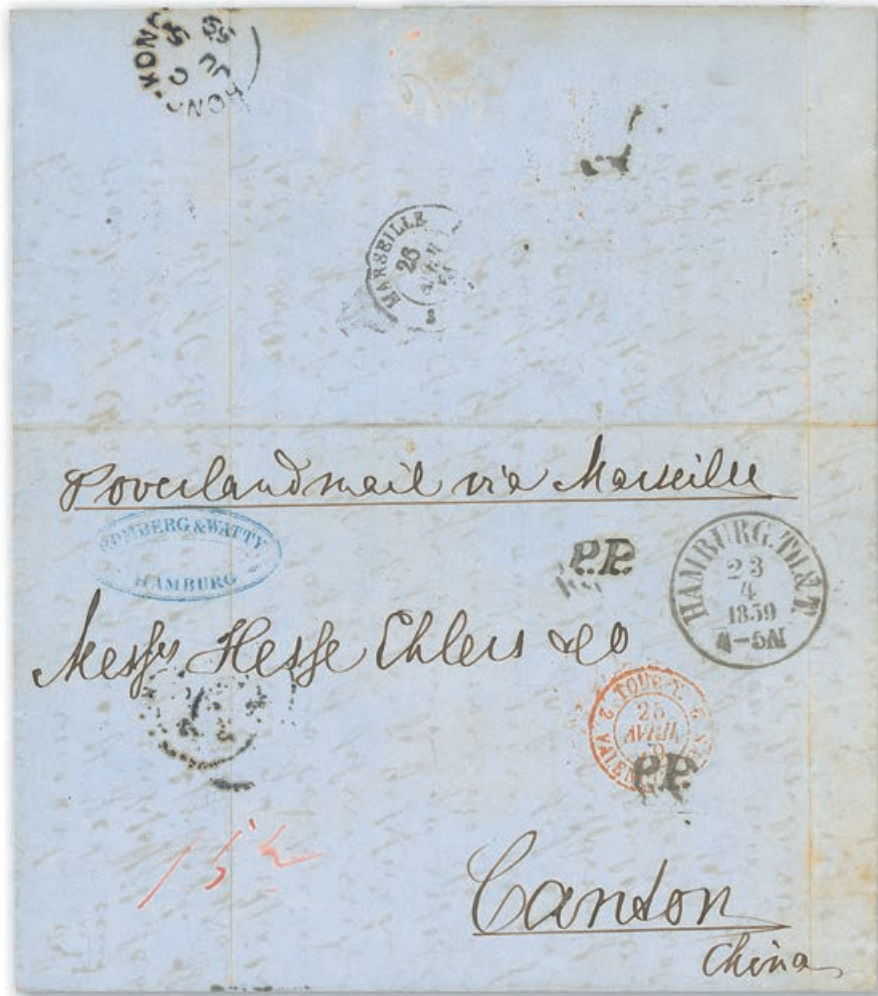 HONG-KONG
C
JU 5
59
MARSEILLE
26
3
P overlandmail via Marseille
ROMBERG & WATTY
HAMBURG
P.P.
HAMBURG. TH.&T.
23
4
1859
4-5N
Messrs Hesse Ehlers & Co
2 TOUR-T. 2
25
AVRIL
P.P.
Canton
China